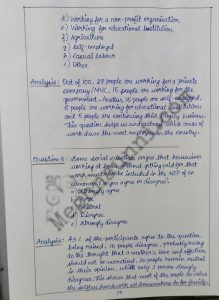 d) Working for a non-profit organisation
e) Working for educational institution
f) Agriculture
g) Self-employed
h) Casual labour
i) Other.
Analysis: Out of 100, 28 people are working for a private
company/MNC, 15 people are working for the
government. Another 15 people are self-employed.
6 people are working for educational institutions
and 5 people are continuing their family business.
This question helps us understand which mode of
work have the most employees in the country.
Question 5 Some social scientists argue that housewives
working at home without getting paid for that
work must also be included in the GDP of an
economy. Do you agree or disagree?
a)
b) Agree
c) Neutral
d) Disagree
e) Strongly disagree
Analysis: 43% of the participants agree to the question
being raised, 16 people disagree, probably owing
to the thought that a mother's love and affection
should not be monetised. 16 people remain neutral
in their opinion, while only 2 person strongly
disagrees, this shows that most of the
the selfless hardwork all housewives to the family.
19